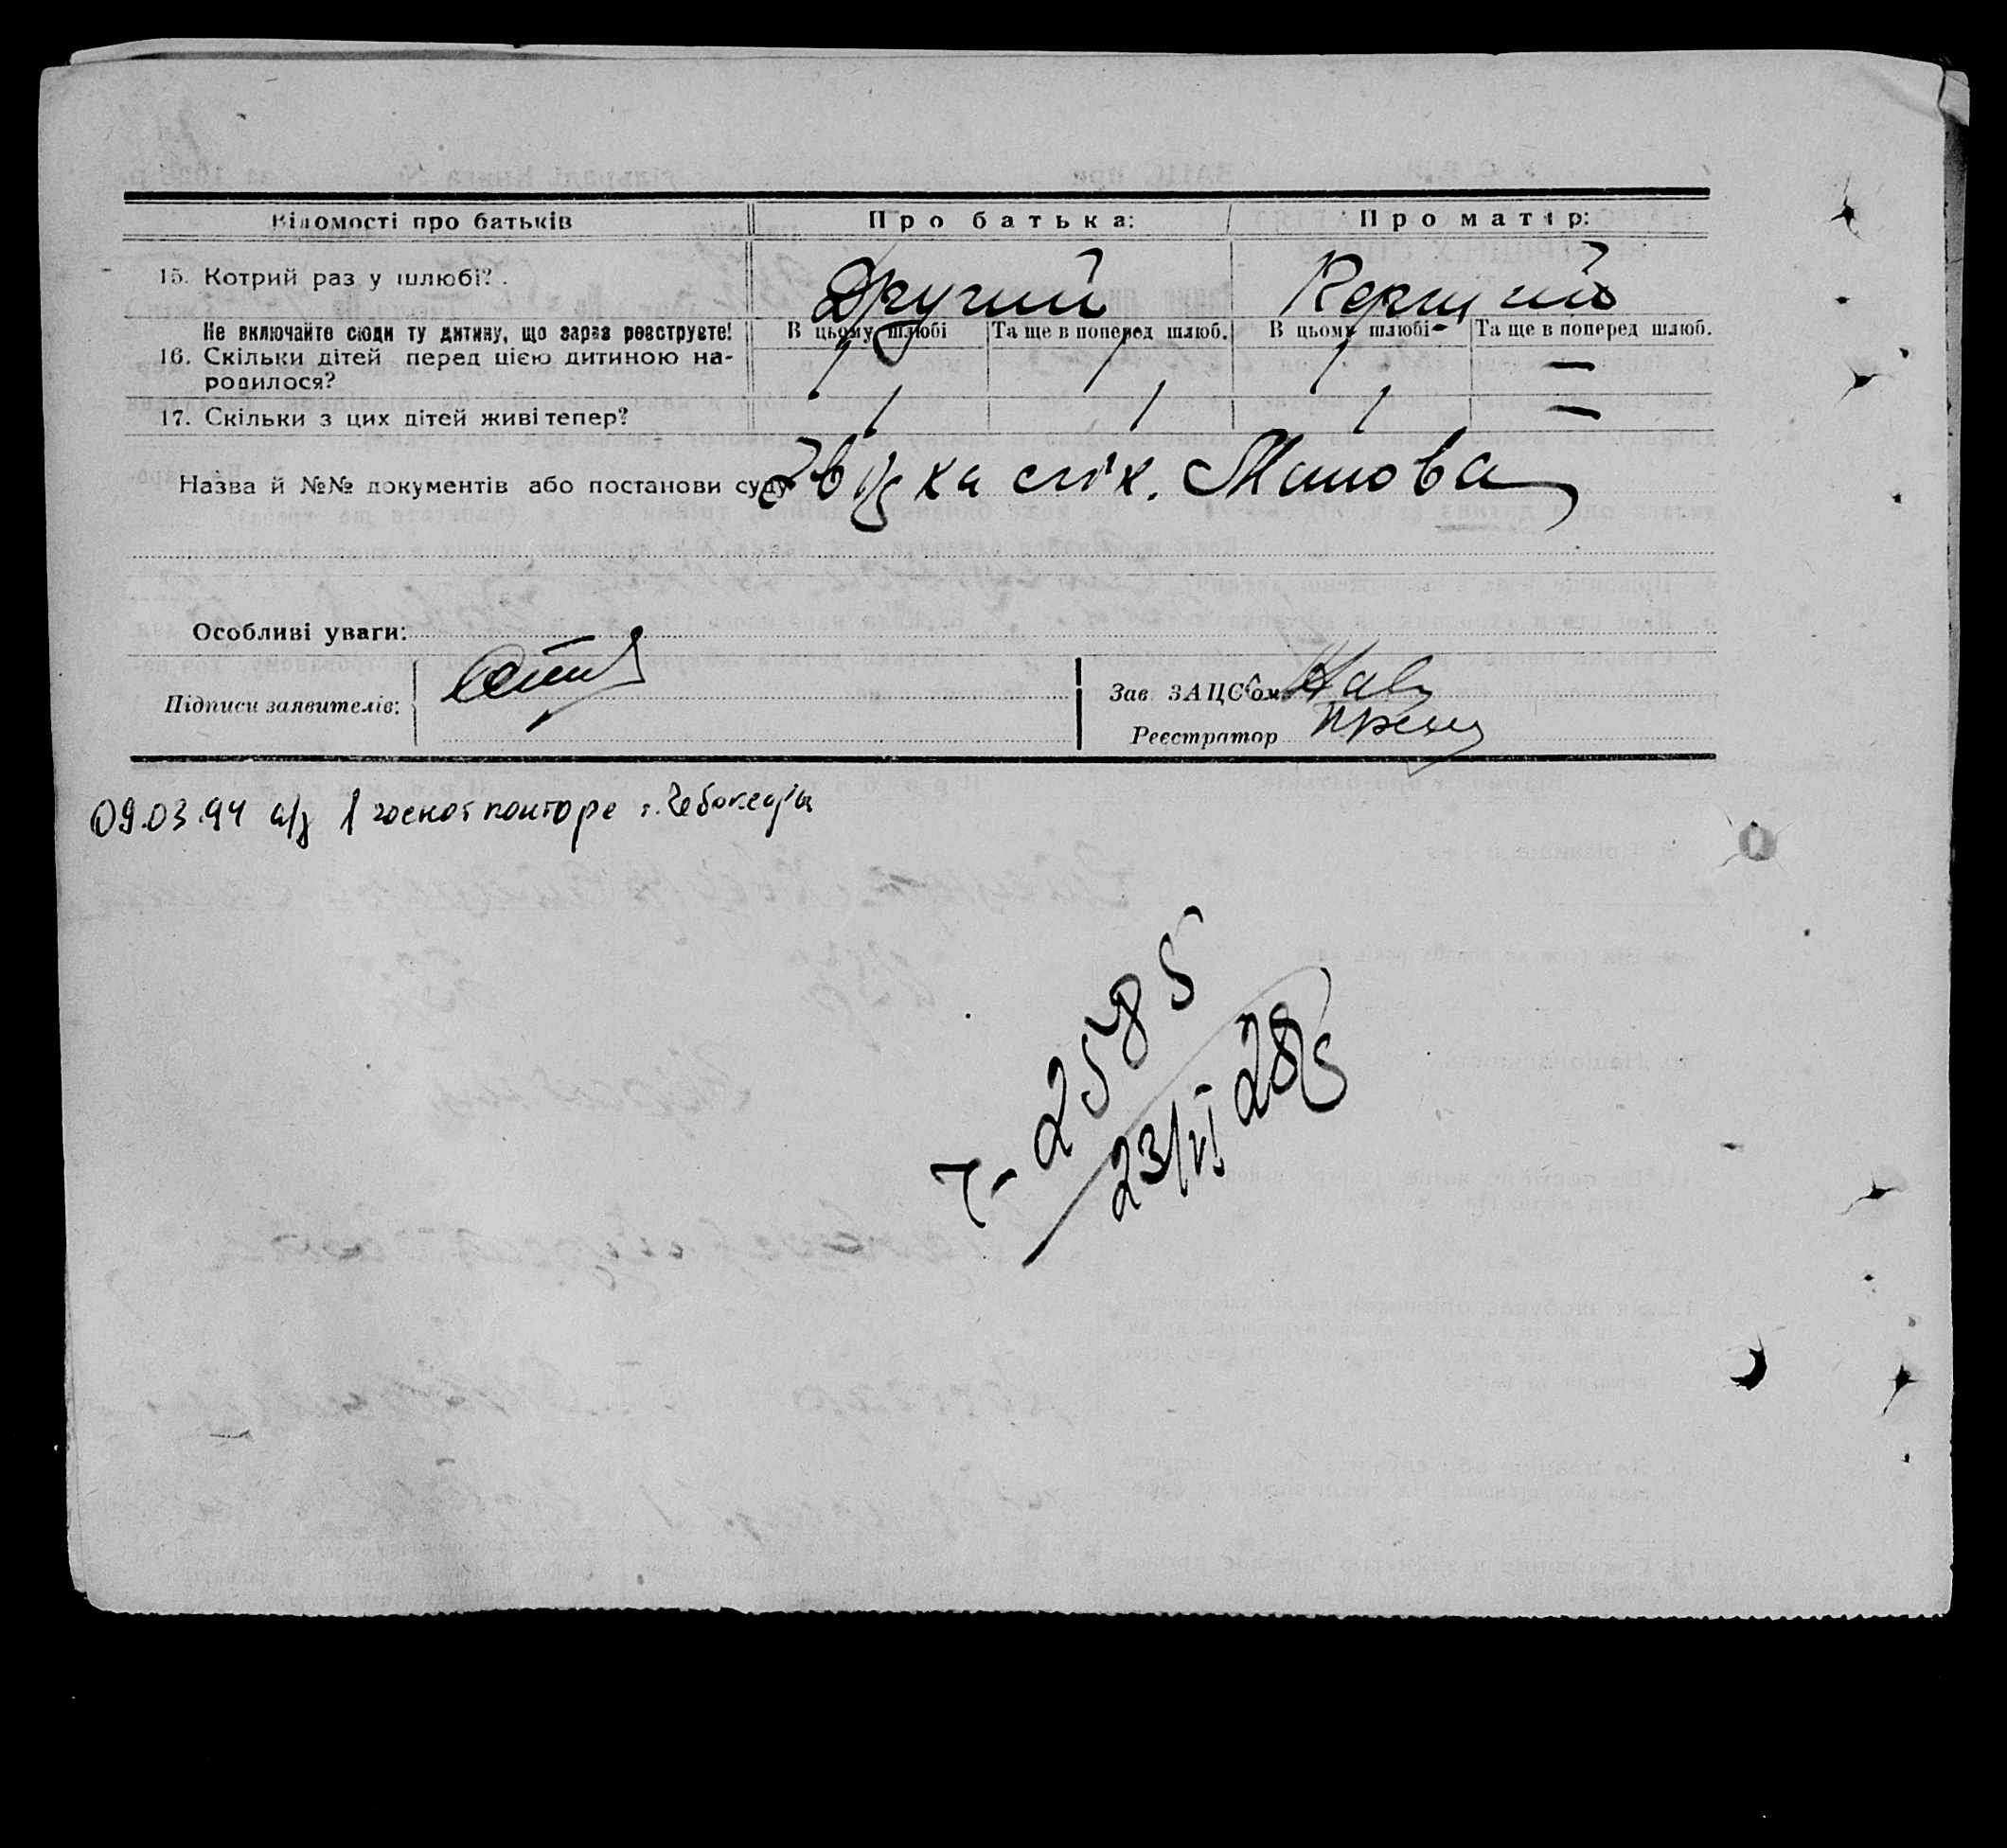 Відомості про батьків Про батька: Про матір:
15. Котрий раз у шлюбі? Другий Перший
Не включайте сюди ту дитину, що зараз реєструєте! В цьому шлюбі Та ще в поперед шлюб. В цьому шлюбі Та ще в поперед шлюб.
16. Скільки дітей перед цією дитиною на-
родилося? 1 1 1 —
17. Скільки з цих дітей живі тепер? 1 1 1 —
Назва й №№ документів або постанови суду
Особливі уваги:
Підписи заявителів:
Зав. ЗАЦС'ом
Реєстратор
09.03.94 1 госнотконторе г. Чебоксары
2585
23/VI 28